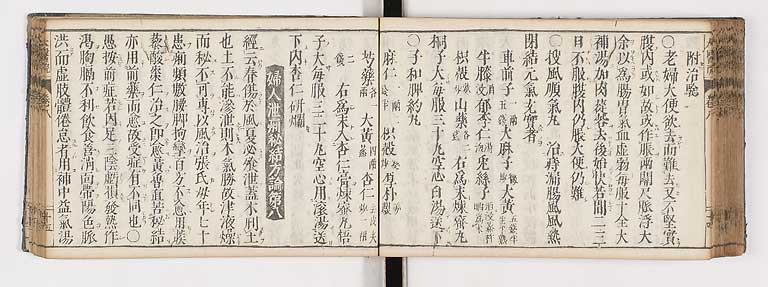 附治驗
○老婦大便欲去而難去又不堅實
腹内或如故或作脹兩關尺脉浮大
余以為腸胃氣血虛弱每服十全大
補湯加肉蓯蓉去後始快若間二三
日不服腹内仍脹大便仍難
○搜風順氣丸 治痔漏腸風風熱
閉結元氣充實者
車前子 大麻子 大黄
牛膝 郁李仁 兎絲子
枳殻 山藥 右為末煉蜜丸
桐子大每服三十丸空心白湯送下
○子和脾約丸
麻仁 枳殻 厚朴
芍藥 大黄 杏仁
右為末入杏仁膏煉蜜丸梧
子大每服三二十丸空心用湯送
下内杏仁研爛
婦人泄瀉結方論第八
經云春傷於風夏必飧泄蓋木剋土
也土不能滲泄則木氣勝故津液燥
而秘不可專以風治張氏母年七十
患痢頻數腰脚拘攣百方不愈用陳
藜酸棗仁冶之即愈黄耆直若秘結
亦用前藥而愈故受症有不同也○
愚按前症若因足三陰虧損發熱作
渴胸膈不利飲食善消面帶陽色脉
洪而虛肢體倦怠者用補中益氣湯